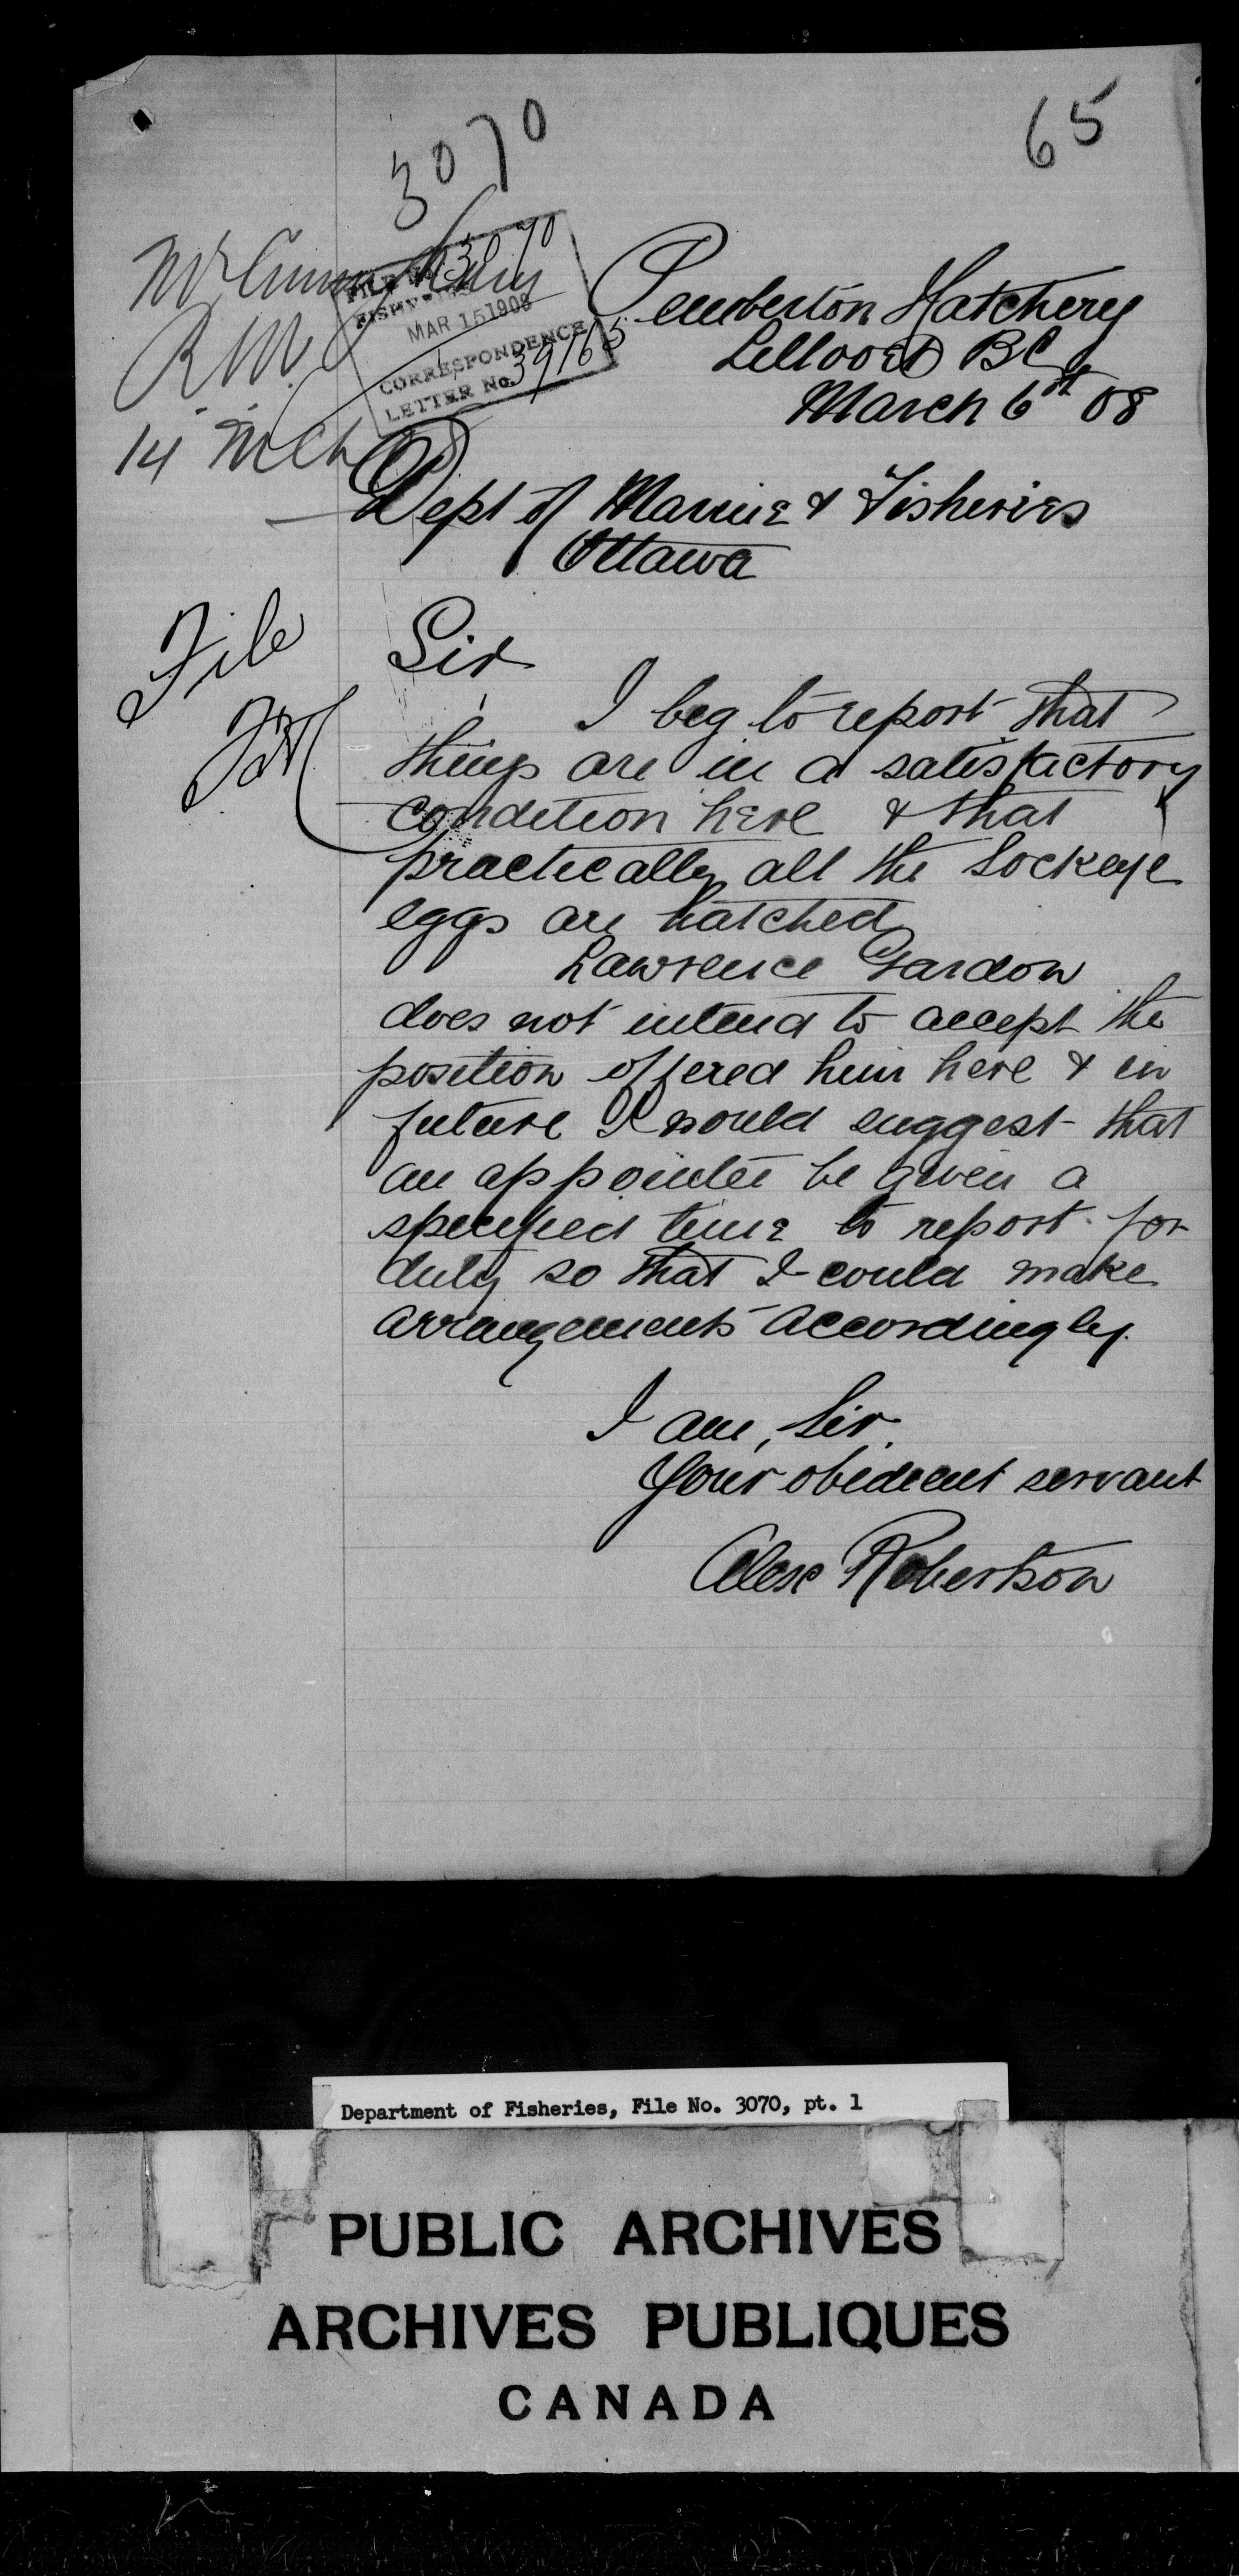 3070
65
Mr Cunningham
RM
14 Mch
FILE No. 3070
FISHERIES
MAR 15 1908
CORRESPONDENCE
LETTER No. 39165
Pemberton Hatchery
Lillooet BC
March 6th 08
Dept of Marine & Fisheries
Ottawa
File
Sir
I beg to report that
things are in a satisfactory
condition here & that
practically all the Sockeye
eggs are hatched
Lawrence Gardon
does not intend to accept the
position offered him here & in
future I would suggest that
an appointee be given a
specified time to report for
duty so that I could make
arrangements accordingly.
I am, Sir,
Your obedient servant
Alex Robertson
Department of Fisheries, File No. 3070, pt. 1
PUBLIC ARCHIVES
ARCHIVES PUBLIQUES
CANADA